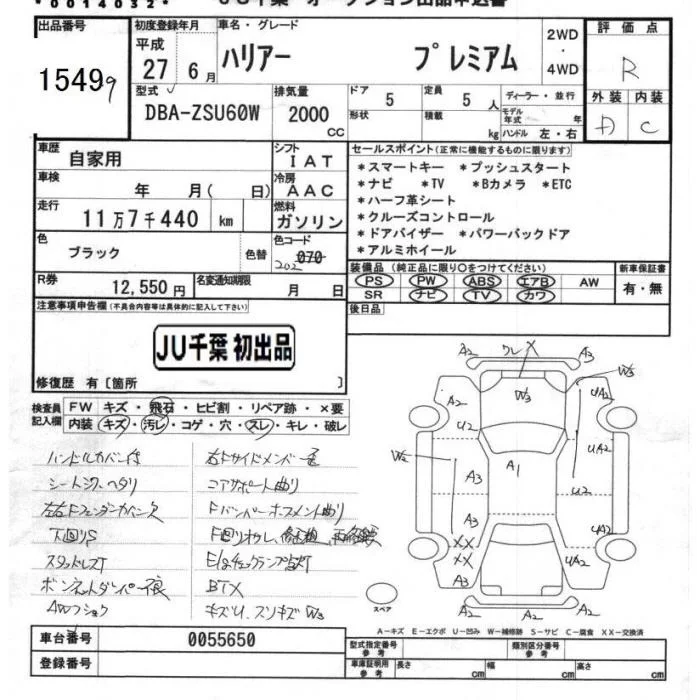 *0014032*
JU千葉 オークション出品申込書
出品番号 初度登録年月 車名・グレード 2WD ・ 4WD 評価点
15499 平成 27 6月 ハリアー プレミアム R
型式 排気量 ドア 5 定員 5 人 ディーラー・並行 外装 内装
DBA-ZSU60W 2000 CC 形状 積載 kg モデル年式 年 ハンドル 左・右 D C
車歴 自家用 シフト IAT
車検 年 月( 日) 冷房 AAC
走行 11万7千440 km 燃料 ガソリン
色 ブラック 色替 色コード 070 202
R券 12,550円 名変通知期限 月 日
セールスポイント(正常に機能するものに限ります)
*スマートキー *プッシュスタート
*ナビ *TV *Bカメラ *ETC
*ハーフ革シート
*クルーズコントロール
*ドアバイザー *パワーバックドア
*アルミホイール
装備品(純正品に限り○をつけてください) 新車保証書
PS PW ABS エアB AW 有・無
SR ナビ TV カワ
後日品
注意事項申告欄(不具合内容等は具体的に記入して下さい)
JU千葉 初出品
修復歴 有〔箇所 〕
検査員記入欄 FW キズ・飛石・ヒビ割・リペア跡・×要
内装 キズ・汚レ・コゲ・穴・スレ・キレ・破レ
ハンドルカバー付
シートシワ、ヘタリ
左右Fフェンダーカバー欠
下回りS
スタッドレスT
ボンネットダンパー不良
AWフショク
右Fサイドメンバー歪
コアサポート曲り
Fバンパーホースメント曲り
E/gチェックランプ点灯
BTX
キズU、スリキズW3
A2 クレ X A3
W3
A2 W3 UA2
U2 UA2
W2 A3 A1 UA2
U2
A3 UA2
XX
XX
A3 UA2
A2 A2 A2
スペア
A－キズ E－エクボ U－凹み W－補修跡 S－サビ C－腐食 XX－交換済
車台番号 0055650
登録番号
型式指定番号 参考 類別区分番号 参考
車庫証明用 参考 長さ cm 幅 cm 高さ cm